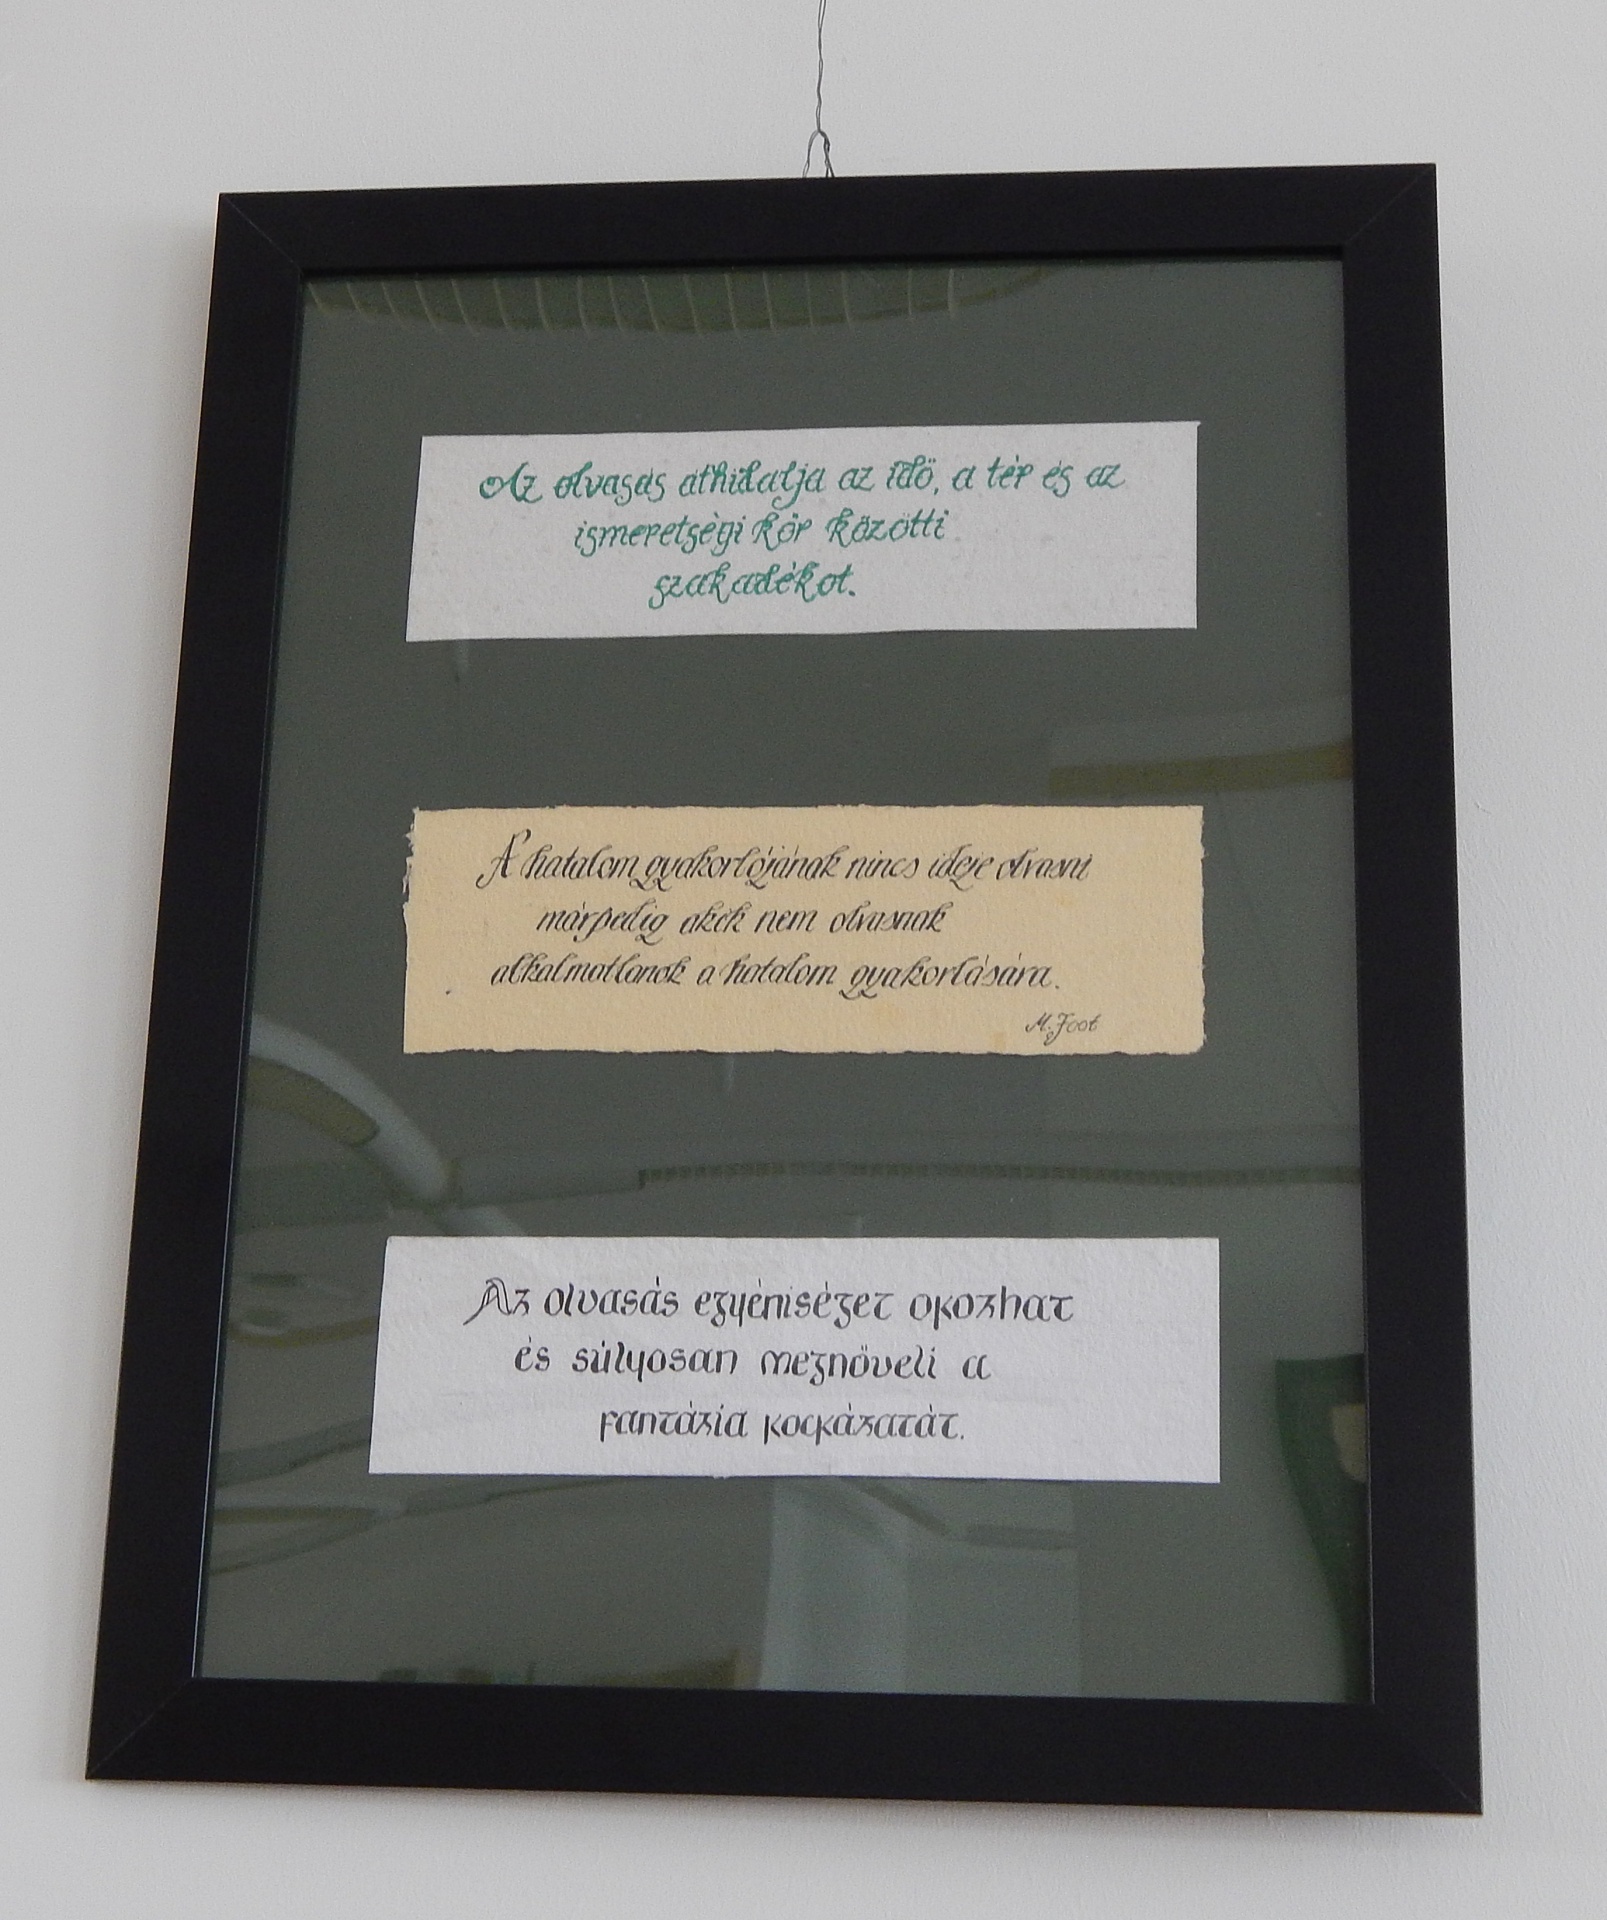 Az olvasás áthidalja az idő, a tér és az
ismeretségi kör közötti
szakadékot.
A hatalom gyakorlójának nincs ideje olvasni
márpedig akik nem olvasnak
alkalmatlanok a hatalom gyakorlására.
M. Foot
Az olvasás egyéniséget okozhat
és súlyosan megnöveli a
fantázia kockázatát.